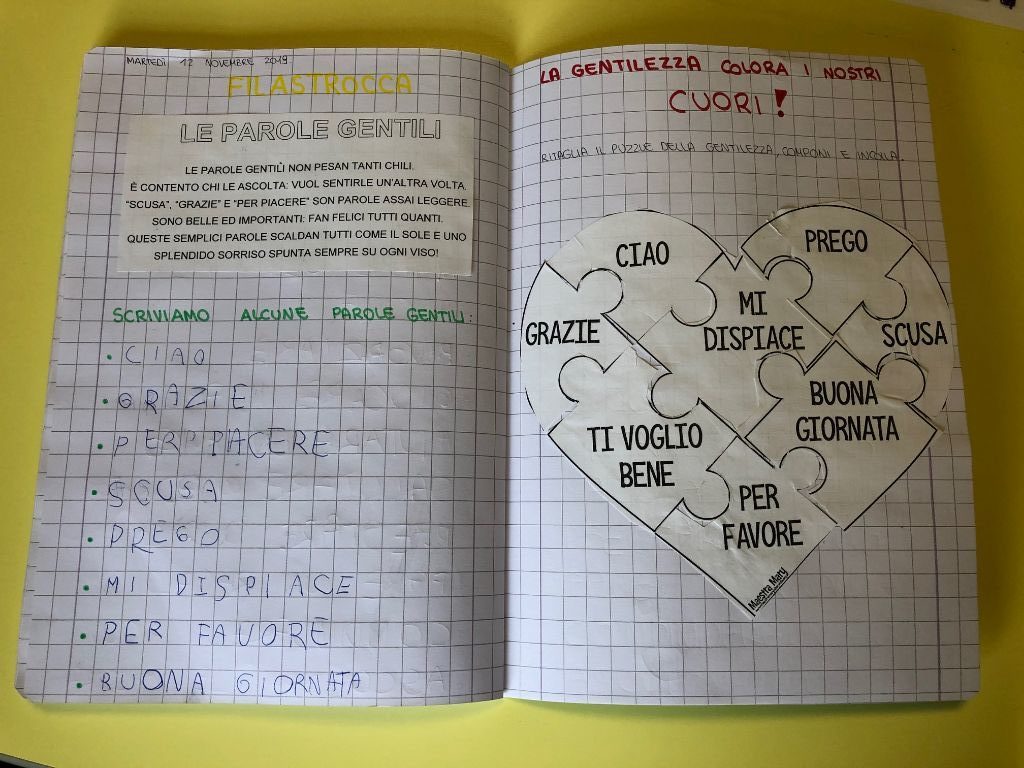 MARTEDÌ 12 NOVEMBRE 2019
FILASTROCCA
LE PAROLE GENTILI
LE PAROLE GENTILÌ NON PESAN TANTI CHILI.
È CONTENTO CHI LE ASCOLTA: VUOL SENTIRLE UN'ALTRA VOLTA.
"SCUSA", "GRAZIE" E "PER PIACERE" SON PAROLE ASSAI LEGGERE.
SONO BELLE ED IMPORTANTI: FAN FELICI TUTTI QUANTI.
QUESTE SEMPLICI PAROLE SCALDAN TUTTI COME IL SOLE E UNO
SPLENDIDO SORRISO SPUNTA SEMPRE SU OGNI VISO!
SCRIVIAMO ALCUNE PAROLE GENTILI:
• CIAO
• GRAZIE
• PER PIACERE
• SCUSA
• PREGO
• MI DISPIACE
• PER FAVORE
• BUONA GIORNATA
LA GENTILEZZA COLORA I NOSTRI
CUORI!
RITAGLIA IL PUZZLE DELLA GENTILEZZA, COMPONI E INCOLLA.
CIAO
PREGO
GRAZIE
MI
DISPIACE
SCUSA
TI VOGLIO
BENE
BUONA
GIORNATA
PER
FAVORE
Maestra Mary